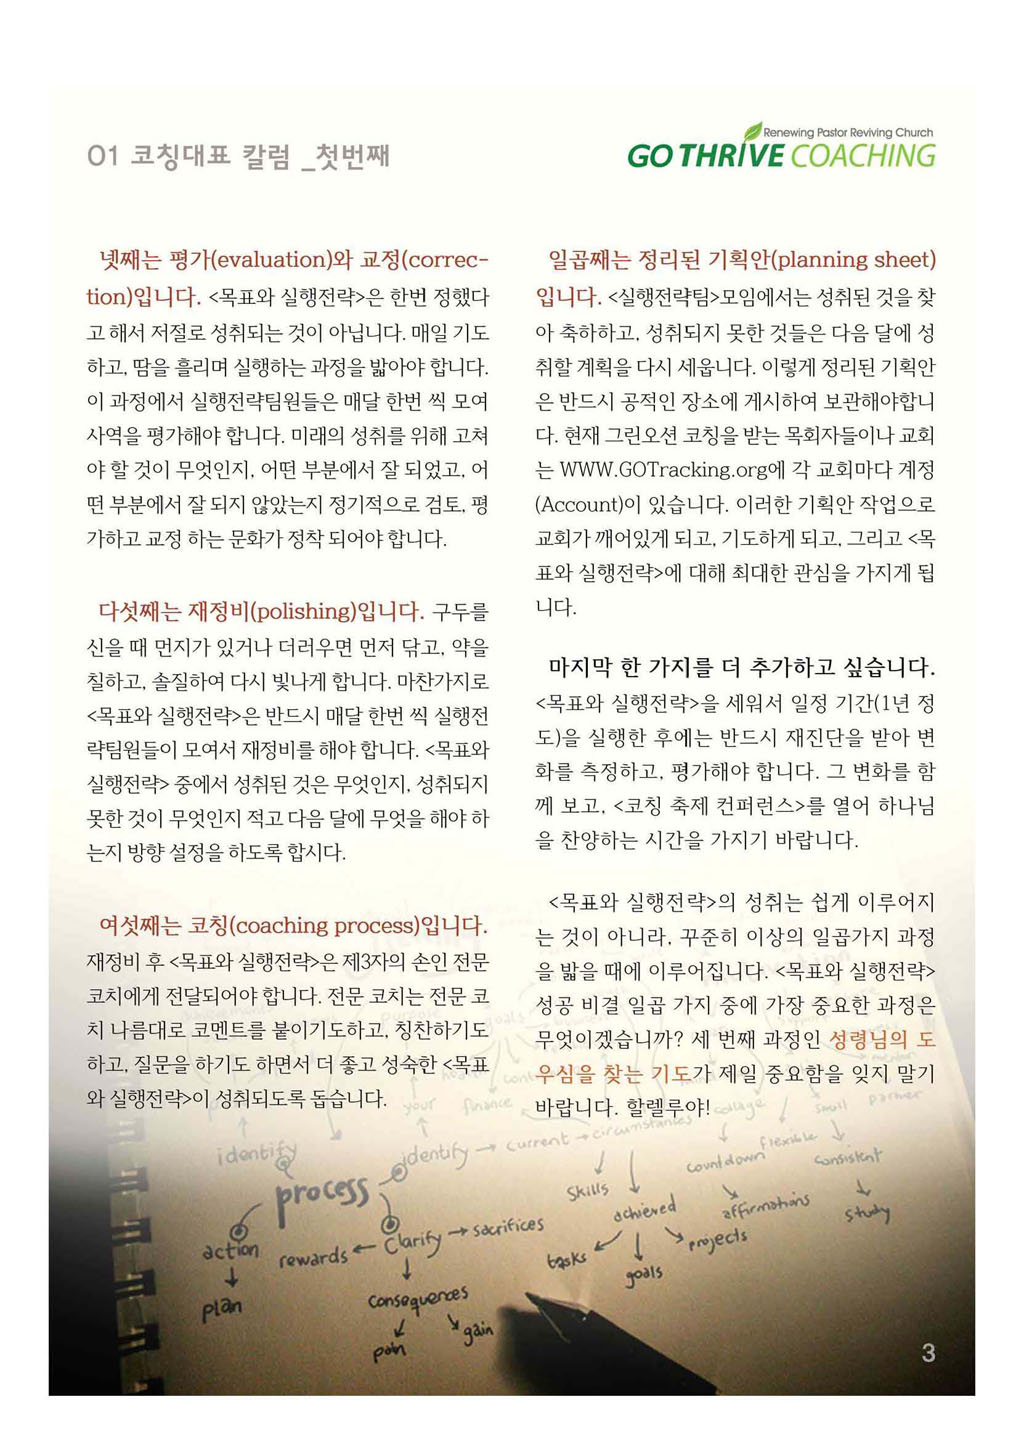 01 코칭대표 칼럼 _첫번째
Renewing Pastor Reviving Church
GO THRIVE COACHING
넷째는 평가(evaluation)와 교정(correc-
tion)입니다. <목표와 실행전략>은 한번 정했다
고 해서 저절로 성취되는 것이 아닙니다. 매일 기도
하고, 땀을 흘리며 실행하는 과정을 밟아야 합니다.
이 과정에서 실행전략팀원들은 매달 한번 씩 모여
사역을 평가해야 합니다. 미래의 성취를 위해 고쳐
야 할 것이 무엇인지, 어떤 부분에서 잘 되었고, 어
떤 부분에서 잘 되지 않았는지 정기적으로 검토, 평
가하고 교정 하는 문화가 정착 되어야 합니다.
다섯째는 재정비(polishing)입니다. 구두를
신을 때 먼지가 있거나 더러우면 먼저 닦고, 약을
칠하고, 솔질하여 다시 빛나게 합니다. 마찬가지로
<목표와 실행전략>은 반드시 매달 한번 씩 실행전
략팀원들이 모여서 재정비를 해야 합니다. <목표와
실행전략> 중에서 성취된 것은 무엇인지, 성취되지
못한 것이 무엇인지 적고 다음 달에 무엇을 해야 하
는지 방향 설정을 하도록 합시다.
여섯째는 코칭(coaching process)입니다.
재정비 후 <목표와 실행전략>은 제3자의 손인 전문
코치에게 전달되어야 합니다. 전문 코치는 전문 코
치 나름대로 코멘트를 붙이기도하고, 칭찬하기도
하고, 질문을 하기도 하면서 더 좋고 성숙한 <목표
와 실행전략>이 성취되도록 돕습니다.
일곱째는 정리된 기획안(planning sheet)
입니다. <실행전략팀>모임에서는 성취된 것을 찾
아 축하하고, 성취되지 못한 것들은 다음 달에 성
취할 계획을 다시 세웁니다. 이렇게 정리된 기획안
은 반드시 공적인 장소에 게시하여 보관해야합니
다. 현재 그린오션 코칭을 받는 목회자들이나 교회
는 WWW.GOTracking.org에 각 교회마다 계정
(Account)이 있습니다. 이러한 기획안 작업으로
교회가 깨어있게 되고, 기도하게 되고, 그리고 <목
표와 실행전략>에 대해 최대한 관심을 가지게 됩
니다.
마지막 한 가지를 더 추가하고 싶습니다.
<목표와 실행전략>을 세워서 일정 기간(1년 정
도)을 실행한 후에는 반드시 재진단을 받아 변
화를 측정하고, 평가해야 합니다. 그 변화를 함
께 보고, <코칭 축제 컨퍼런스>를 열어 하나님
을 찬양하는 시간을 가지기 바랍니다.
<목표와 실행전략>의 성취는 쉽게 이루어지
는 것이 아니라, 꾸준히 이상의 일곱가지 과정
을 밟을 때에 이루어집니다. <목표와 실행전략>
성공 비결 일곱 가지 중에 가장 중요한 과정은
무엇이겠습니까? 세 번째 과정인 성령님의 도
우심을 찾는 기도가 제일 중요함을 잊지 말기
바랍니다. 할렐루야!
your finance collage small partner
identify identify current circumstances countdown flexible consistent
process skills achieved affirmations study
action rewards clarify sacrifices tasks projects
plan consequences goals
pain gain
3